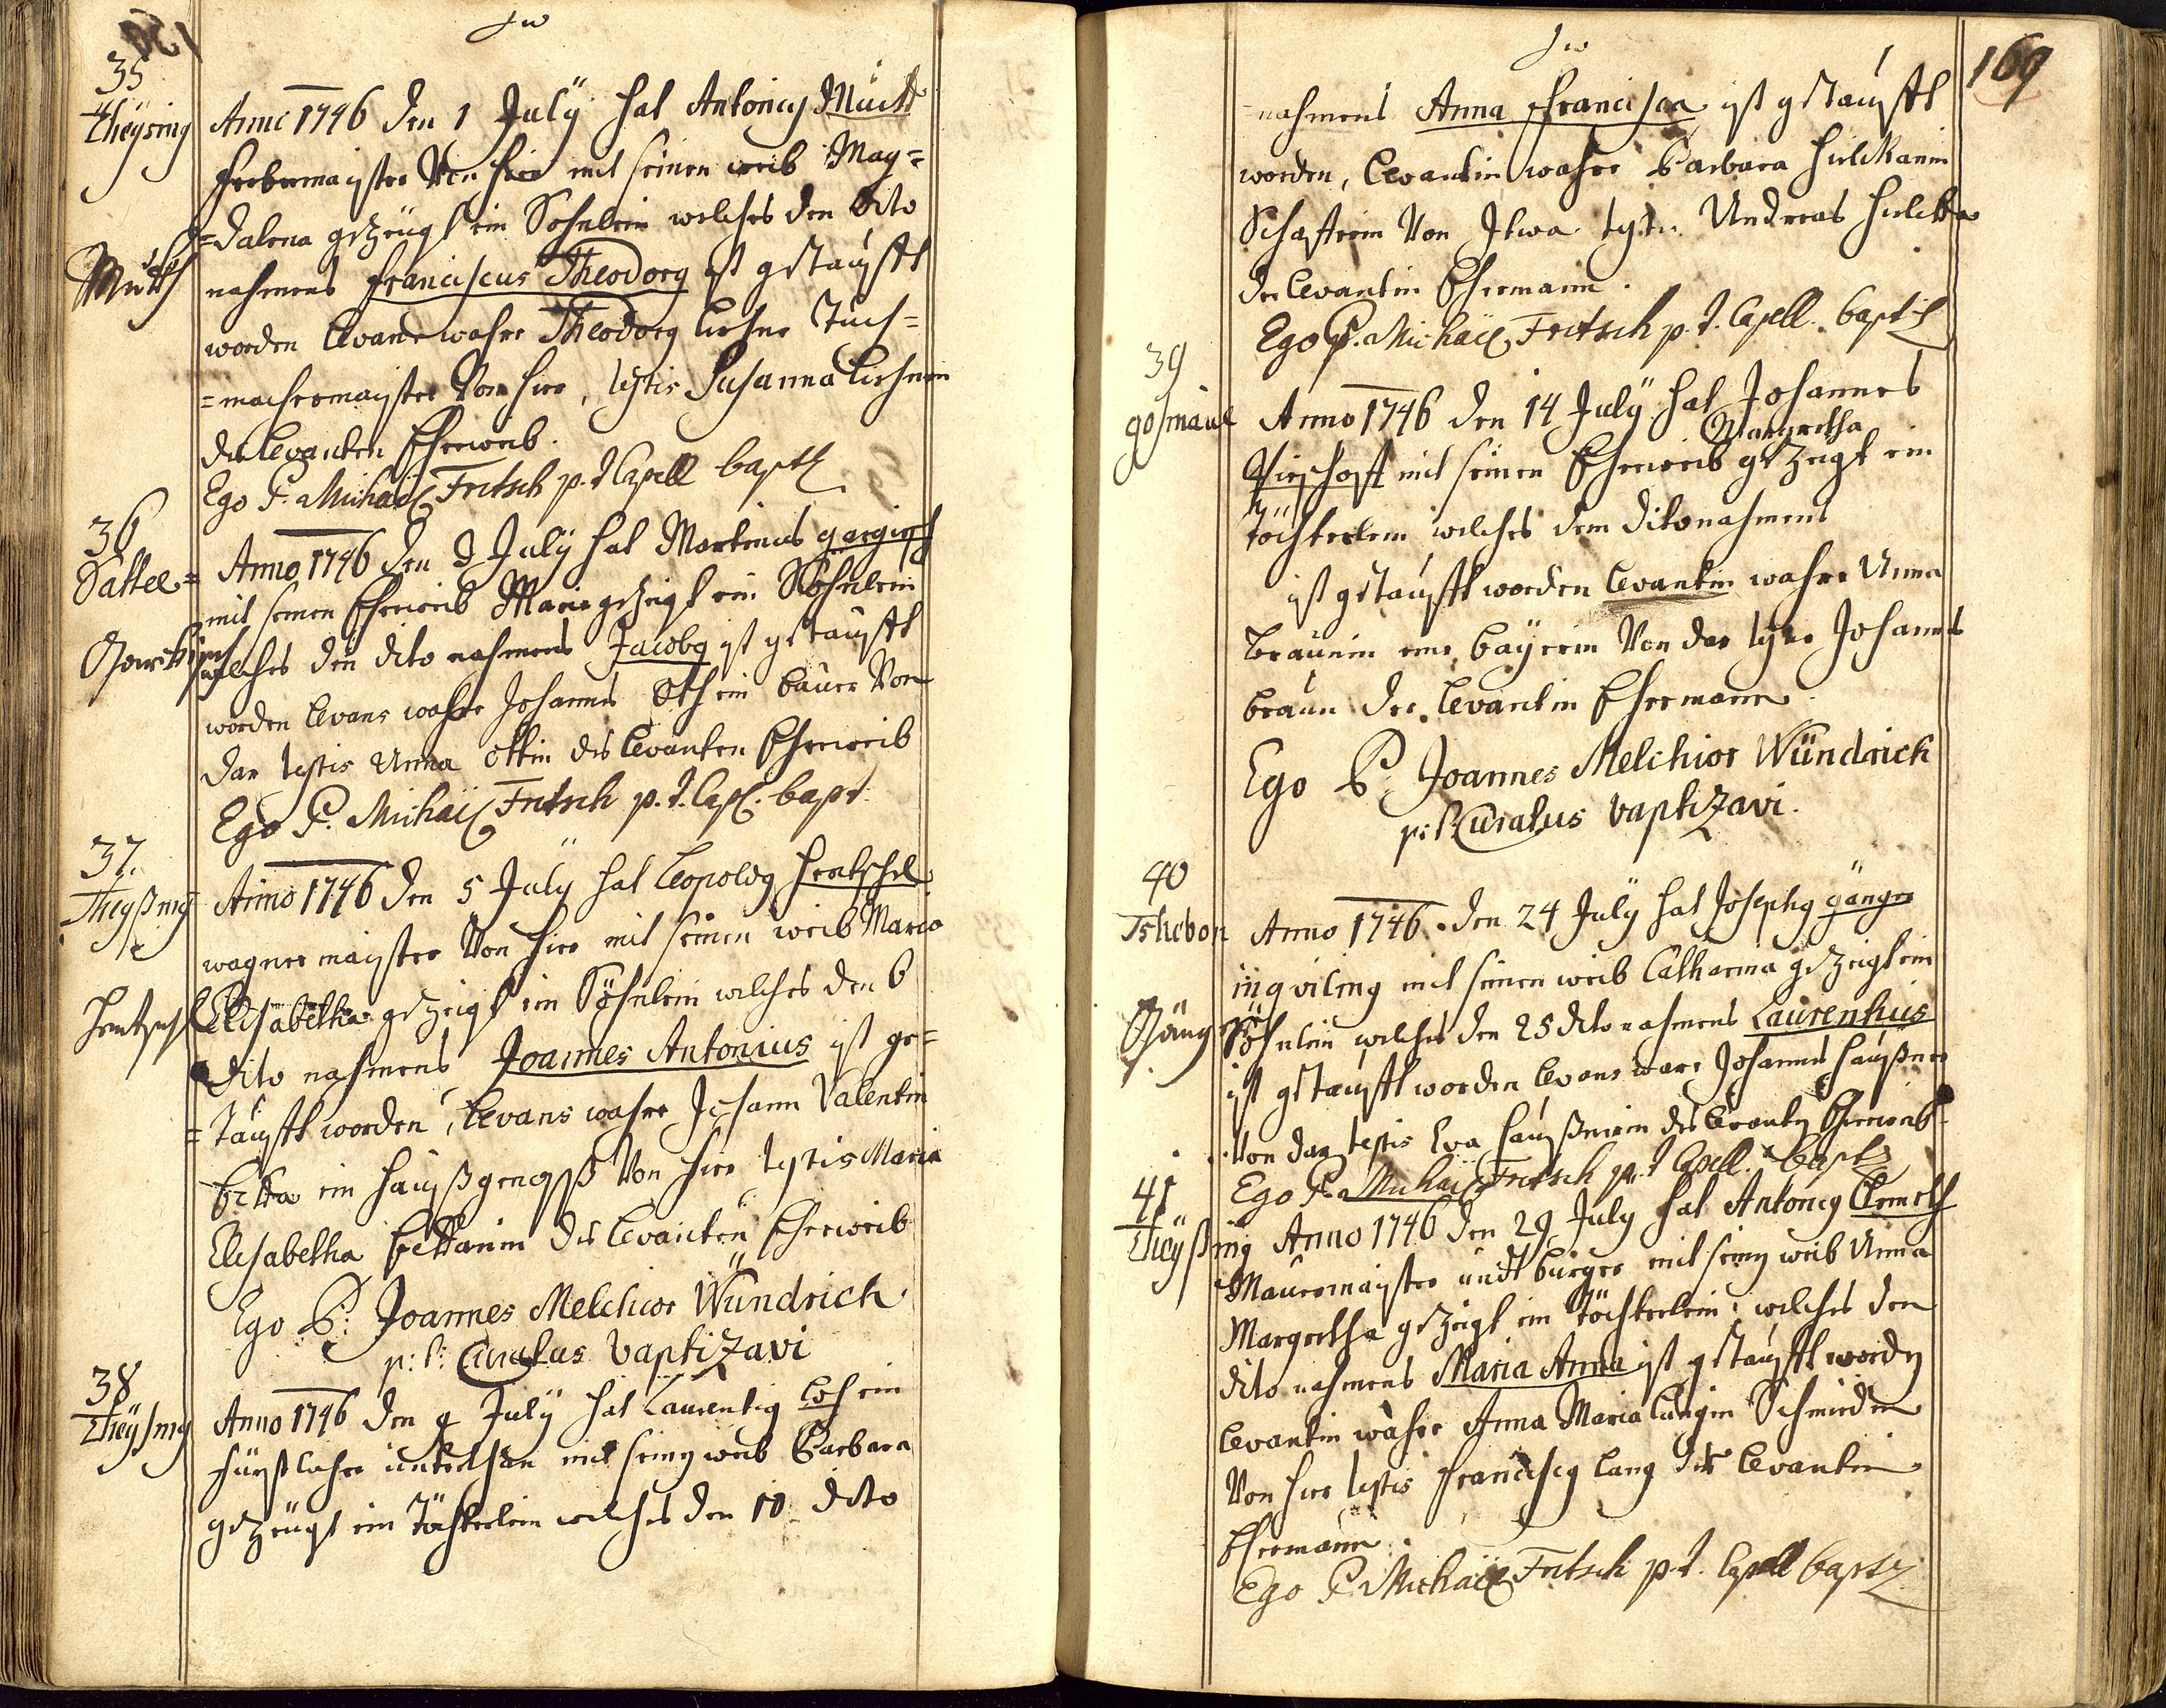 35
Theysing
Anno 1746 den 1 July hat Antonius Mutt
ferbermayster Von hier mit seinen weib Mag=
=dalena gezeugt ein Sohnlein welches den dito
Mutth
nahmens Franciscus Theodorg ist getaufft
worden Levans wahre Theodorg Lehner Tuch=
=machermayster Von hier, testis Susanna Lehnerin
des Levanten Eheweib.
Ego P. Michaël Fritsch p.t. Capell bapt
36
Sattel=
Anno 1746 den 3 July hat Martinus
mit seinen Eheweib Maria gezeigt ein Söhnlein
welches den dito nahmens Jacobg ist getaufft
worden Levans wahre Johannes Oth ein bauer Von
dar testis Anna Ottin des Levanten Eheweib
Ego P. Michaël Fritsch p.t. Cap. bapt.
37.
Theyßing
Anno 1746 den 5 July hat Leopoldg Hentschel
wagner mayster Von hier mit seinen weib Maria
Hentschl
Elisabetha gezeigt ein Söhnlein welches den 6
dito nahmens Joannes Antonius ist ge=
=taufft worden, Levans wahre Johann Valentin
ein haußgenoß Von hier testis Maria
Elisabetha des Levanten Eheweib
Ego P: Joannes Melchior Wündrich
p:t: Curatus baptizavi
38
Theysing
Anno 1746 den 9 July hat Laurentig Loh ein
fürstlicher unterthan mit seing weib Barbara
gezeugt ein Töchterlein welches den 10 dito
169
nahmens Anna Francisca ist getaufft
worden, Levantin wahre Barbara
Schafferin Von testis Andreas
der Levantin Ehemann.
Ego P. Michaël Fritsch p.t. Capell. bapt
39
gosmaul
Anno 1746 den 14 July hat Johannes
Margretha
mit seinen Eheweib gezeigt ein
töchterlein welches dem dito nahmens
ist getaufft worden Levantin wahre Anna
Braunin eine bayerin Von dar Johannes
braun der Levantin Ehemann
Ego P: Joannes Melchior Wündrich
p:t: Curatus baptizavi.
40
Tschebon
Anno 1746. den 24 July hat Josephg gänger
inqviling mit seinen weib Catharina gezeigt ein
Söhnlein welches den 25 dito nahmens Laurentius
ist getaufft worden Levans ware Johannes haußner
Von dar testis Eva haußnerin des Levanten Eheweib
Ego P. Michaël Fritsch p.t. Capell. bapt
41
Theyßing
Anno 1746 den 29 July hat Antonig Clemeth
Mauermayster undt burger mit seing weib Anna
Margretha gezeigt ein töchterlein welches den
dito nahmens Maria Anna ist getaufft wordn
Levantin wahre Anna Maria Langin Schmiedin
Von hier testis Franciscg Lang der Levantin
Ehemann.
Ego P. Michaël Fritsch p.t. Capell bapt